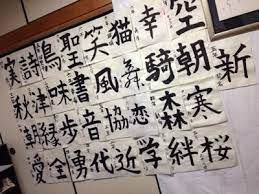 実詩鳥聖笑猫幸空
秋津味書風舞騎朝新
縁歩音協恋森寒
愛全勇代近学絆桜